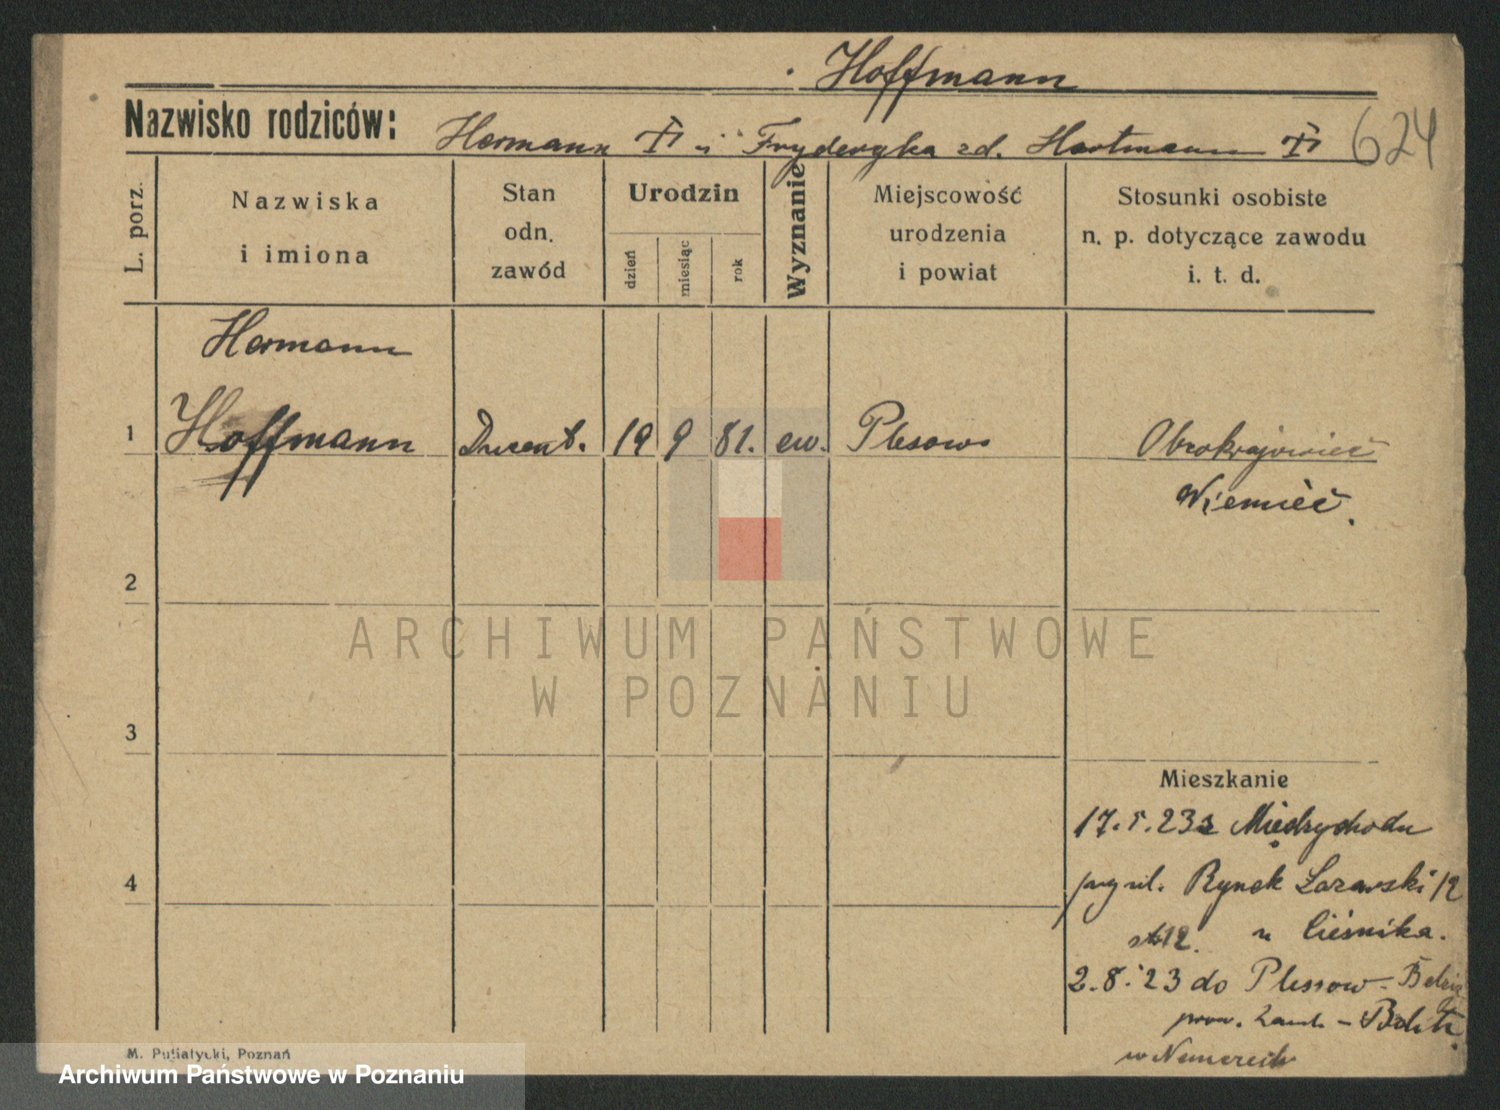 Hoffmann
Nazwisko rodziców: Hermann i Fryderyka zd. Hartmann
624
L. porz.
Nazwiska i imiona
Stan odn. zawód
Urodzin
dzień
miesiąc
rok
Wyznanie
Miejscowość urodzenia i powiat
Stosunki osobiste n. p. dotyczące zawodu i. t. d.
Hermann
1 Hoffmann 19 9 81. ew. Plesow Obcokrajowiec
Niemiec.
2
ARCHIWUM PAŃSTWOWE
W POZNANIU
3
Mieszkanie
17.5.23 z Międzychodu
4
Rynek Łazarski 12
u Cieśnika.
2.8.23 do Plessow
w Niemczech
M. Putiatycki, Poznań
Archiwum Państwowe w Poznaniu